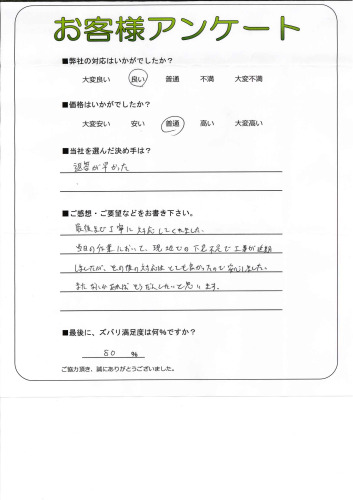 お客様アンケート
■弊社の対応はいかがでしたか?
大変良い 良い 普通 不満 大変不満
■価格はいかがでしたか?
大変安い 安い 普通 高い 大変高い
■当社を選んだ決め手は?
返答が早かった
■ご感想・ご要望などをお書き下さい。
最後まで丁寧に対応してくれました。
当日の作業において、現地での下見不足で工事が延期
しましたが、その後の対応はとても良かったので安心しました。
また何かあればそうだんしたいと思います。
■最後に、ズバリ満足度は何%ですか?
80 %
ご協力頂き、誠にありがとうございました。